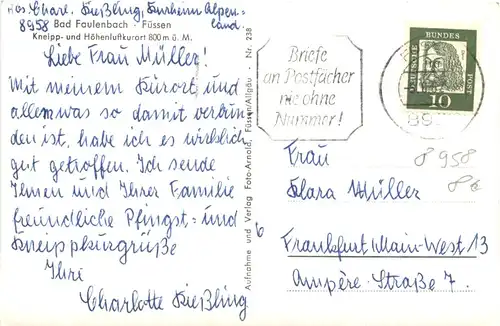 Abs. Charl. Kießling, Kurheim Alpen-
8958 Bad Faulenbach · Füssen land.
Kneipp- und Höhenluftkurort 800 m ü. M.
Liebe Frau Müller!
Mit meinem Kurort und
allem was so damit verbun
den ist, habe ich es wirklich
gut getroffen. Ich sende
Ihnen und Ihrer Familie
freundliche Pfingst- und
Kneippkurgrüße
Ihre
Charlotte Kießling
Aufnahme und Verlag Foto-Arnold, Füssen/Allgäu · Nr. 238
Briefe
an Postfächer
nie ohne
Nummer!
DEUTSCHE BUNDES POST
10
89
8958
Frau
Klara Müller
6
Frankfurt/Main-West 13
Ampère-Straße 7.